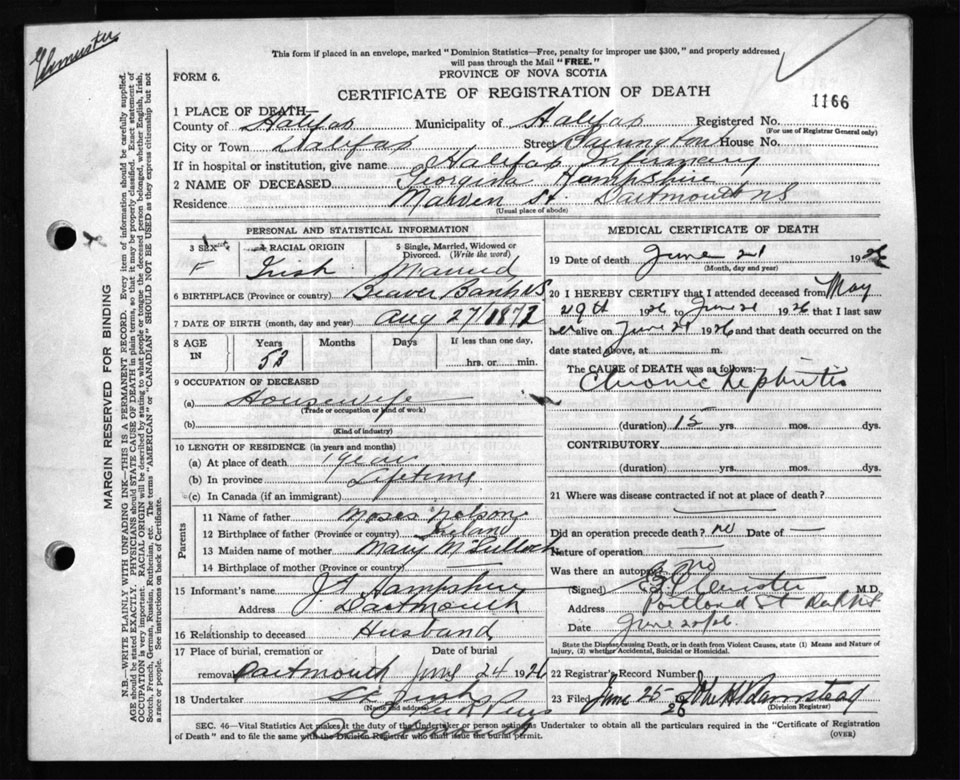 This form if placed in an envelope, marked "Dominion Statistics—Free, penalty for improper use $300," and properly addressed
will pass through the Mail "FREE."
FORM 6.
PROVINCE OF NOVA SCOTIA
CERTIFICATE OF REGISTRATION OF DEATH
1166
1 PLACE OF DEATH
County of Halifax Municipality of Halifax Registered No.
(For use of Registrar General only)
City or Town Halifax Street House No.
If in hospital or institution, give name Halifax Infirmary
2 NAME OF DECEASED Georgina Hampshire
Residence St. Dartmouth NS
(Usual place of abode)
PERSONAL AND STATISTICAL INFORMATION
3 SEX F
RACIAL ORIGIN Irish
5 Single, Married, Widowed or Divorced. (Write the word) Married
6 BIRTHPLACE (Province or country) Beaver Bank NS
7 DATE OF BIRTH (month, day and year) Aug 27/187
8 AGE IN Years Months Days If less than one day, hrs. or min.
9 OCCUPATION OF DECEASED
(a) Housewife
(Trade or occupation or kind of work)
(b)
(Kind of industry)
10 LENGTH OF RESIDENCE (in years and months)
(a) At place of death 1 year
(b) In province Lifetime
(c) In Canada (if an immigrant)
Parents
11 Name of father Moses
12 Birthplace of father (Province or country) Ireland
13 Maiden name of mother Mary
14 Birthplace of mother (Province or country) —
15 Informant's name Hampshire
Address Dartmouth
16 Relationship to deceased Husband
17 Place of burial, cremation or removal Dartmouth
Date of burial June 24 1926
18 Undertaker
(Name and address)
MEDICAL CERTIFICATE OF DEATH
19 Date of death June 21 1926
(Month, day and year)
20 I HEREBY CERTIFY that I attended deceased from May
29th 1926 to June 21 1926 that I last saw
her alive on June 21 1926 and that death occurred on
date stated above, at m.
The CAUSE OF DEATH was as follows:
Chronic Nephritis
(duration) 15 yrs. mos. dys.
CONTRIBUTORY
(duration) yrs. mos. dys.
21 Where was disease contracted if not at place of death?
Did an operation precede death? no Date of —
Nature of operation —
Was there an autopsy? no
(Signed) M.D.
Address Portland St
Date June
State the Disease causing Death, or in death from Violent Causes, state (1) Means and Nature of
Injury, (2) whether Accidental, Suicidal or Homicidal.
22 Registrar's Record Number
23 Filed June 25 26
(Division Registrar)
SEC. 46—Vital Statistics Act makes it the duty of the Undertaker or person acting as Undertaker to obtain all the particulars required in the "Certificate of Registration
of Death" and to file the same with the Division Registrar who shall issue the burial permit.
(OVER)
MARGIN RESERVED FOR BINDING
N.B.—WRITE PLAINLY WITH UNFADING INK—THIS IS A PERMANENT RECORD. Every item of information should be carefully supplied.
AGE should be stated EXACTLY. PHYSICIANS should STATE CAUSE OF DEATH in plain terms, so that it may be properly classified. Exact statement of
OCCUPATION is very important. RACIAL ORIGIN will be described by stating to what people or tongue the deceased person belonged, whether English, Irish,
Scotch, French, German, Russian, Ruthenian, etc. The terms "AMERICAN" or "CANADIAN" SHOULD NOT BE USED as they express citizenship but not
a race or people. See instructions on back of Certificate.